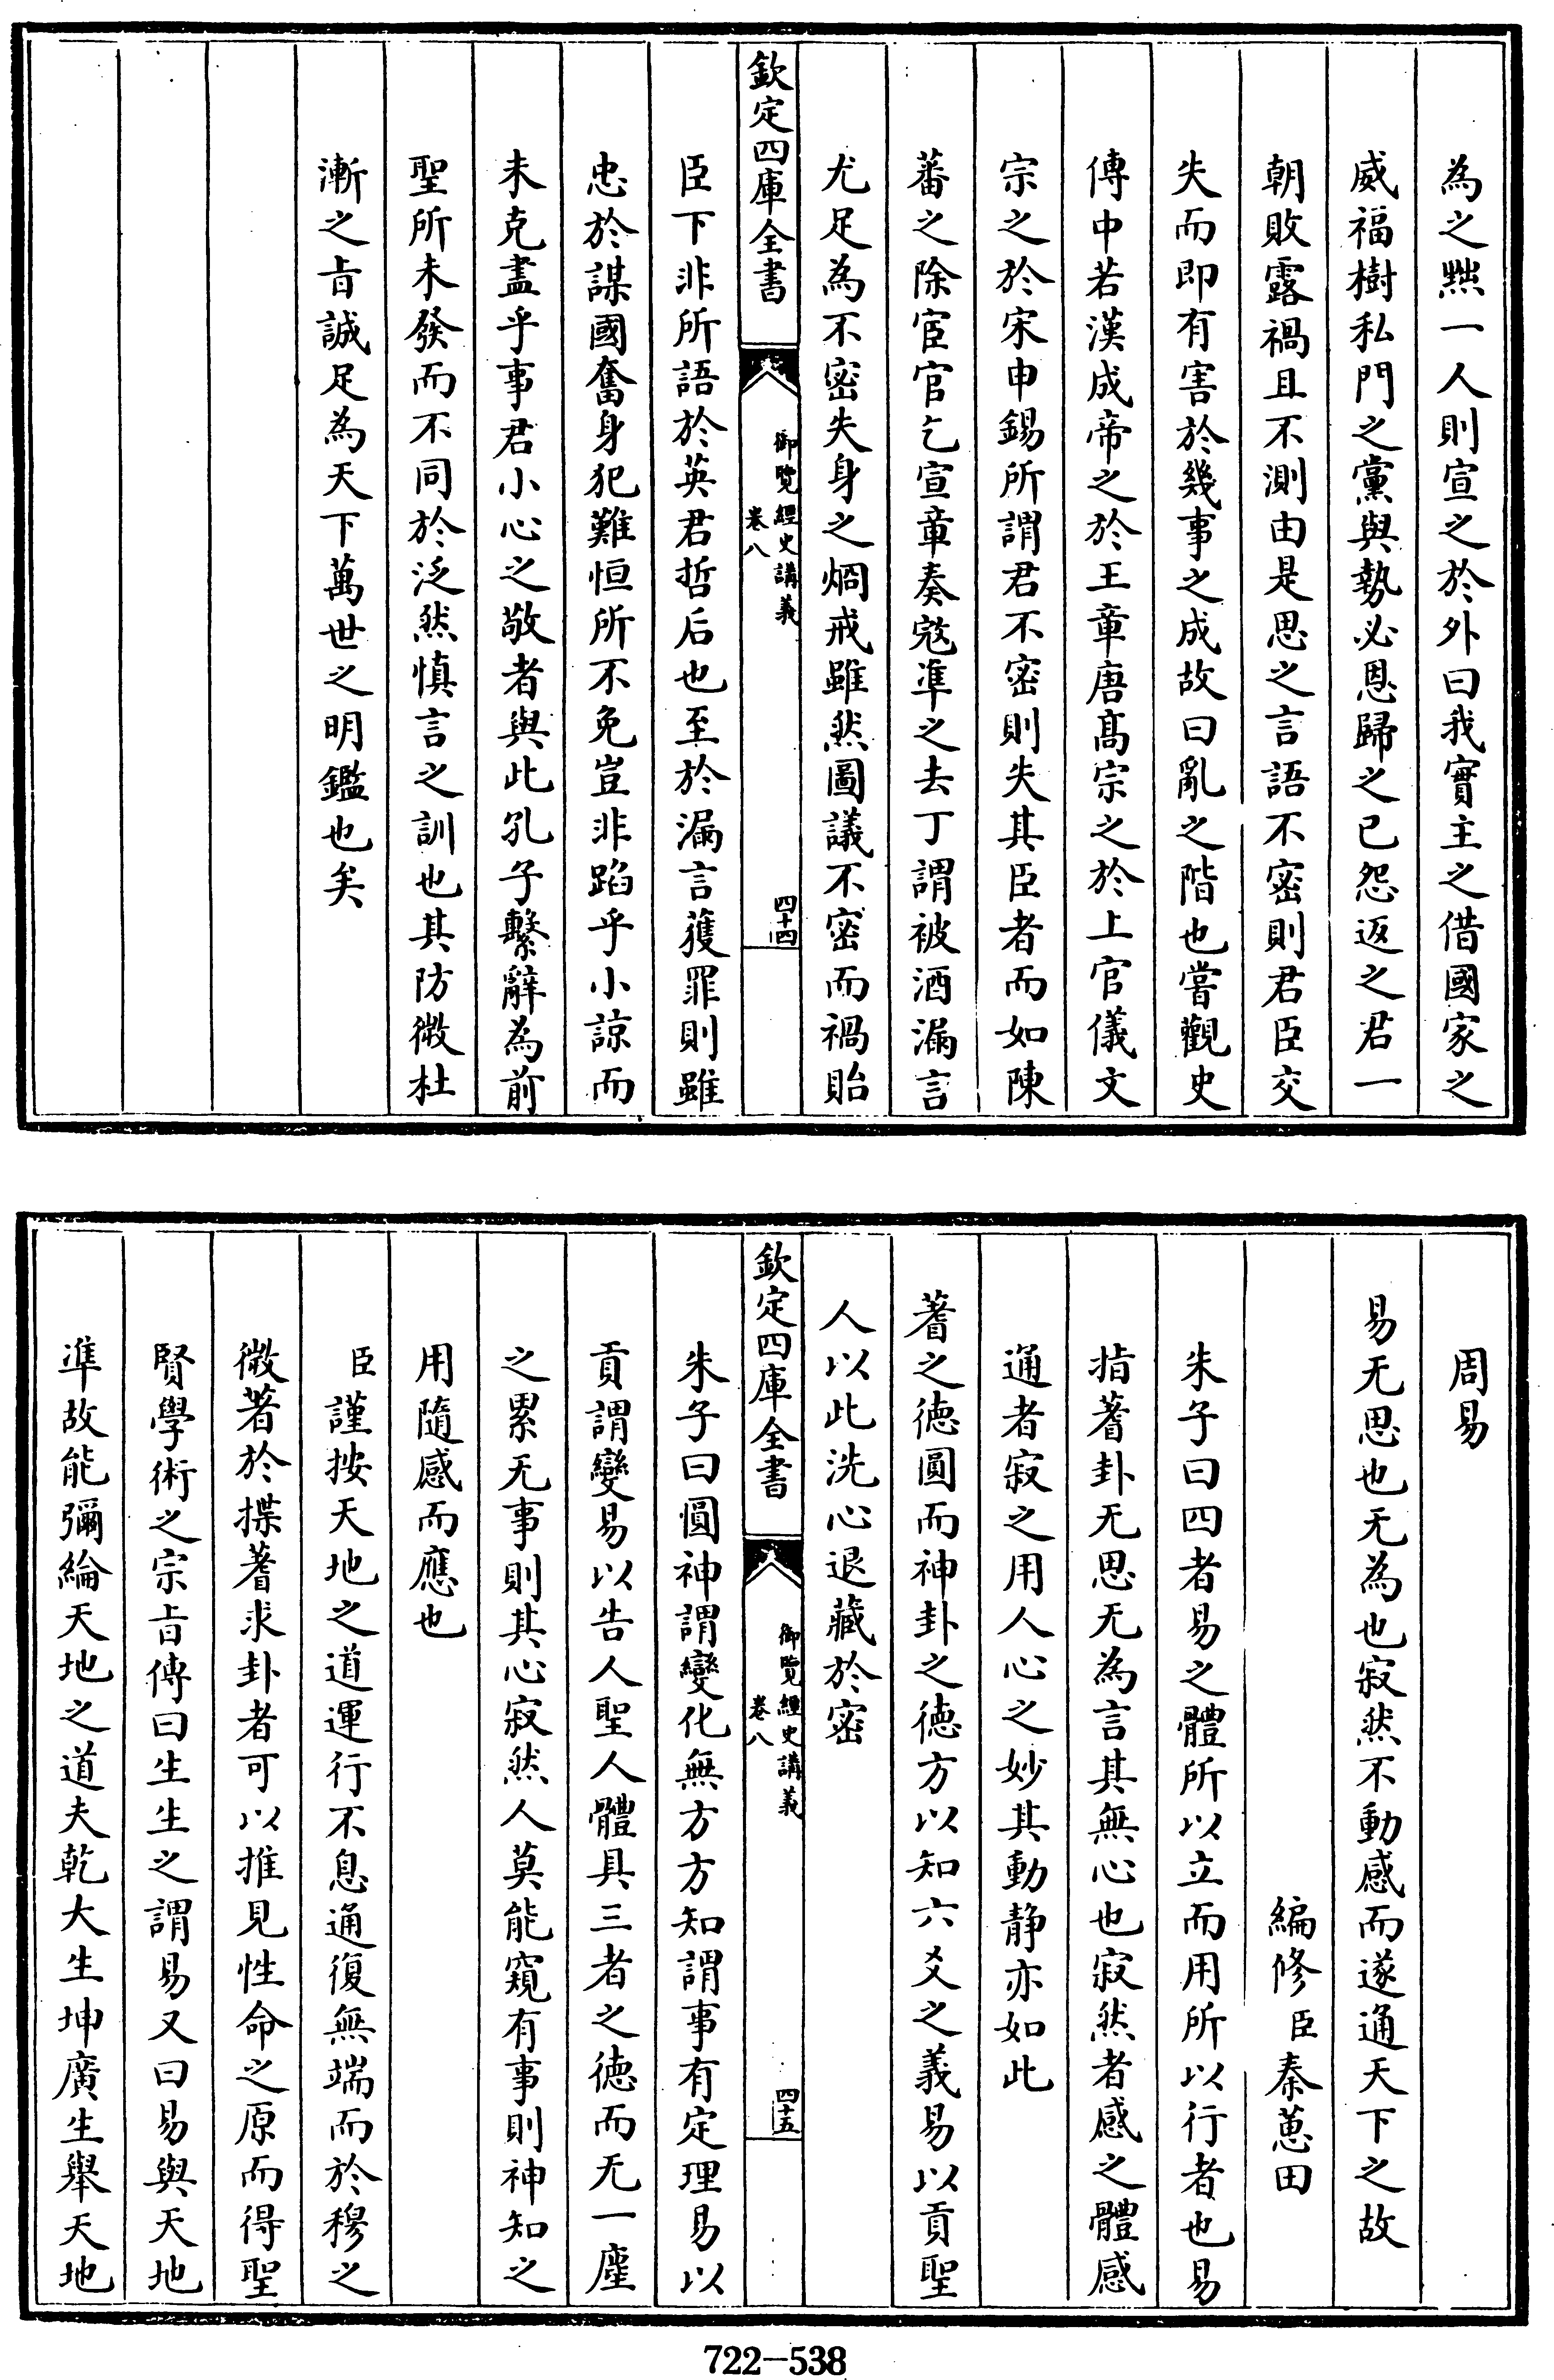 為之黙一人則宣之於外曰我實主之借國家之
威福樹私門之黨與勢必恩歸之已怨返之君一
朝敗露禍且不測由是思之言語不密則君臣交
失而即有害於幾事之成故曰亂之階也嘗觀史
傳中若漢成帝之於王章唐髙宗之於上官儀文
宗之於宋申錫所謂君不密則失其臣者而如陳
蕃之除宦官乞宣章奏寇凖之去丁謂被酒漏言
尤足為不密失身之烱戒雖然圖議不密而禍貽
欽定四庫全書
御覽經史講義
卷八
四十四
臣下非所語於英君哲后也至於漏言獲罪則雖
忠於謀國奮身犯難恒所不免豈非蹈乎小諒而
未克盡乎事君小心之敬者與此孔子繫辭為前
聖所未發而不同於泛然慎言之訓也其防微杜
漸之㫖誠足為天下萬世之明鑑也矣
周易
易无思也无為也寂然不動感而遂通天下之故
編修臣秦蕙田
朱子曰四者易之體所以立而用所以行者也易
指蓍卦无思无為言其無心也寂然者感之體感
通者寂之用人心之妙其動静亦如此
蓍之徳圓而神卦之徳方以知六爻之義易以貢聖
人以此洗心退藏於密
欽定四庫全書
御覽經史講義
卷八
四十五
朱子曰圓神謂變化無方方知謂事有定理易以
貢謂變易以告人聖人體具三者之徳而无一塵
之累无事則其心寂然人莫能窺有事則神知之
用隨感而應也
臣謹按天地之道運行不息通復無端而於穆之
微著於揲蓍求卦者可以推見性命之原而得聖
賢學術之宗㫖傳曰生生之謂易又曰易與天地
凖故能彌綸天地之道夫乾大生坤廣生舉天地
722-538